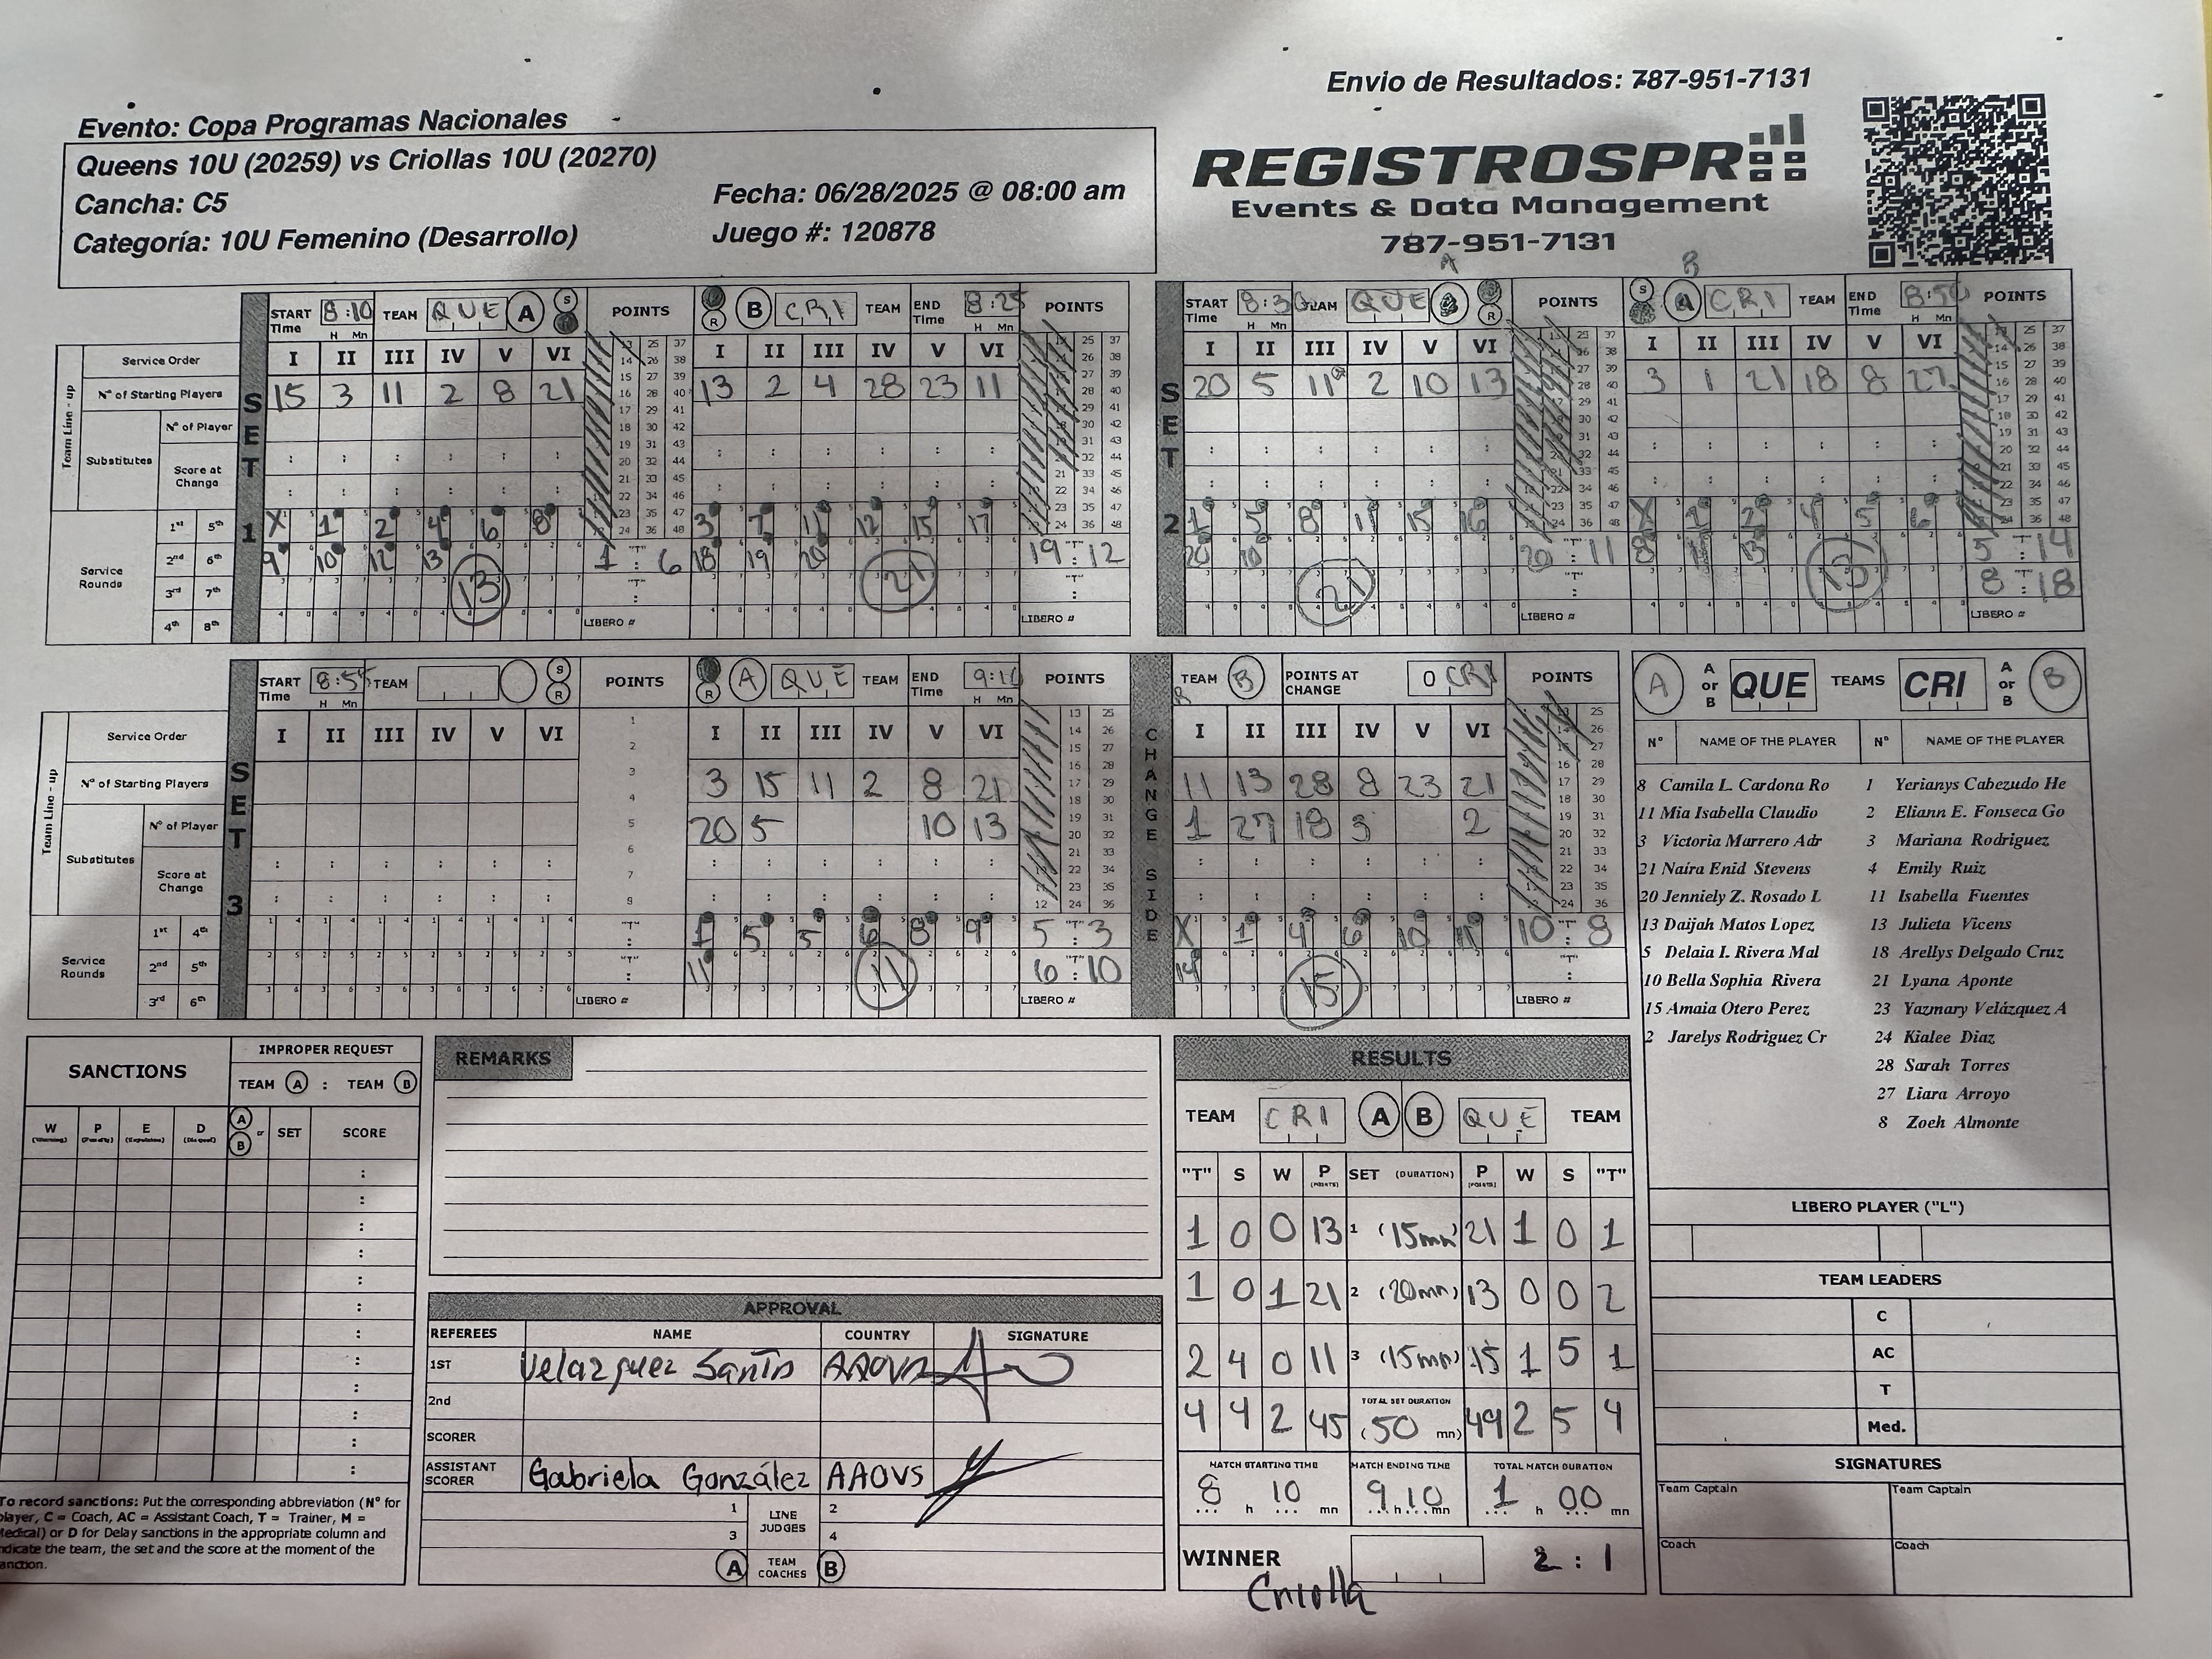 Envio de Resultados: 787-951-7131
Evento: Copa Programas Nacionales
Queens 10U (20259) vs Criollas 10U (20270)
Cancha: C5
Fecha: 06/28/2025 @ 08:00 am
Categoría: 10U Femenino (Desarrollo)
Juego #: 120878
REGISTROSPR
Events & Data Management
787-951-7131
SET 1
START Time 8:10 TEAM QUE A S POINTS R B CRI TEAM END Time 8:25 POINTS
H Mn H Mn
Team Line-up
Service Order I II III IV V VI I II III IV V VI
N° of Starting Players 15 3 11 2 8 21 13 2 4 28 23 11
Substitutes N° of Player
Score at Change
Service Rounds
1st 5th X 1 2 4 6 8 3 7 11 12 15 17
2nd 6th 9 10 12 13 1 "T" : 6 18 19 20 19 "T" : 12
3rd 7th 13 "T" : 21 "T" :
4th 8th LIBERO # LIBERO #
SET 2
A B
START Time TEAM QUE R POINTS S A CRI TEAM END Time 8:50 POINTS
H Mn H Mn
I II III IV V VI I II III IV V VI
20 5 11 2 10 13 3 1 21 18 8 27
1 5 8 11 15 16 X 1 2 4 5 6
20 20 "T" : 11 8 13 5 "T" : 14
21 "T" : 13 8 "T" : 18
LIBERO # LIBERO #
SET 3
START Time 8:55 TEAM S R POINTS R A QUE TEAM END Time 9:10 POINTS
H Mn H Mn
Team Line-up
Service Order I II III IV V VI I II III IV V VI
N° of Starting Players 3 15 11 2 8 21
Substitutes N° of Player 20 5 10 13
Score at Change
Service Rounds
1st 4th "T" : 1 5 5 6 8 9 5 "T" : 3
2nd 5th "T" : 11 11 6 "T" : 10
3rd 6th LIBERO # LIBERO #
CHANGE SIDE
TEAM B POINTS AT CHANGE 0 CRI POINTS
I II III IV V VI
11 13 28 8 23 21
1 27 18 3 2
X 1 4 6 10 11 10 "T" : 8
14 15 "T" :
LIBERO #
A A or B QUE TEAMS CRI A or B B
N° NAME OF THE PLAYER N° NAME OF THE PLAYER
8 Camila L. Cardona Ro 1 Yerianys Cabezudo He
11 Mia Isabella Claudio 2 Eliann E. Fonseca Go
3 Victoria Marrero Adr 3 Mariana Rodriguez
21 Naíra Enid Stevens 4 Emily Ruiz
20 Jenniely Z. Rosado L 11 Isabella Fuentes
13 Daijah Matos Lopez 13 Julieta Vicens
5 Delaia I. Rivera Mal 18 Arellys Delgado Cruz
10 Bella Sophia Rivera 21 Lyana Aponte
15 Amaia Otero Perez 23 Yazmary Velázquez A
2 Jarelys Rodriguez Cr 24 Kialee Diaz
28 Sarah Torres
27 Liara Arroyo
8 Zoeh Almonte
LIBERO PLAYER ("L")
TEAM LEADERS
C
AC
T
Med.
SIGNATURES
Team Captain Team Captain
Coach Coach
SANCTIONS
IMPROPER REQUEST
TEAM A : TEAM B
W P E D A or B SET SCORE
To record sanctions: Put the corresponding abbreviation (N° for
player, C = Coach, AC = Assistant Coach, T = Trainer, M =
Medical) or D for Delay sanctions in the appropriate column and
indicate the team, the set and the score at the moment of the
sanction.
REMARKS
APPROVAL
REFEREES NAME COUNTRY SIGNATURE
1ST Velazquez Santo AAOVS
2nd
SCORER
ASSISTANT SCORER Gabriela González AAOVS
1 LINE JUDGES 2
3 4
A TEAM COACHES B
RESULTS
TEAM CRI A B QUE TEAM
"T" S W P (POINTS) SET (DURATION) P (POINTS) W S "T"
1 0 0 13 1 (15mn) 21 1 0 1
1 0 1 21 2 (20mn) 13 0 0 2
2 4 0 11 3 (15mn) 15 1 5 1
4 4 2 45 TOTAL SET DURATION (50 mn) 49 2 5 4
MATCH STARTING TIME MATCH ENDING TIME TOTAL MATCH DURATION
8 h 10 mn 9 h 10 mn 1 h 00 mn
WINNER 2 : 1
Criolla